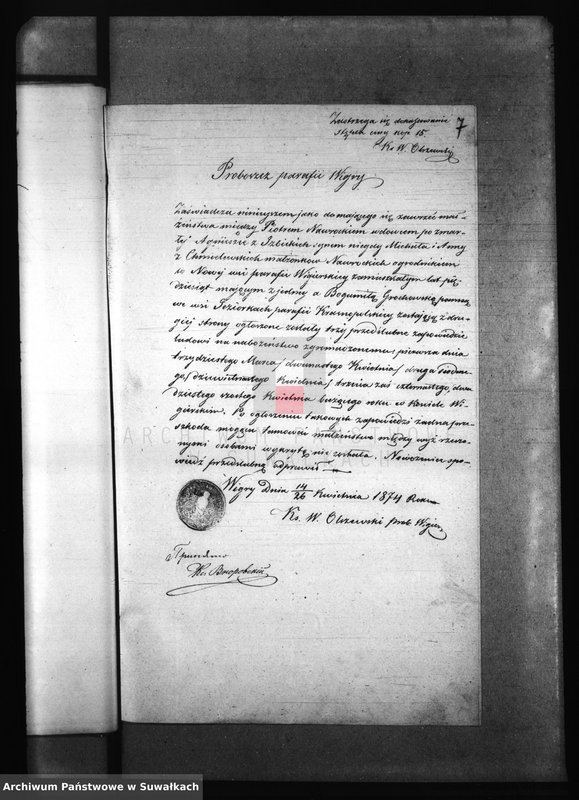 Zastrzega się dokasowanie
stępla ceny kop 15.
Ks W. Olszewski
7
Proboszcz parafii Wigry
Zaświadcza niniejszem jako do mającego się zawrzeć mał
żeństwa między Piotrem Nawrockiem wdowcem po zmar
łej Agnieszce z Izbickich synem niegdy Michała i Anny
z Chmielewskich małżonków Nawrockich ogrodnikiem
w Nowej wsi parafii Wigierskiej zamieszkałym lat pię
dziesiąt mającym z jednej a Bogumiłą Grochowską panną
we wsi Jeziorkach parafii Krasnopolskiej zostającą z dru
giej strony ogłoszone zostały trzy przedślubne zapowiedzie
ludowi na nabożeństwo zgromadzonemu; pierwsza dnia
trzydziestego Marca/dwunastego Kwietnia/druga siódme
go/dziewiętnastego Kwietnia/trzecia zaś czternastego/dwu
dziestego szóstego Kwietnia bieżącego roku w Kościele Wi
gierskim. Po ogłoszeniu takowych zapowiedzi żadna prze
szkoda mogąca tamować małżeństwo między wyż rzeczo
nymi osobami wykrytą nie została. Nowożeniec spo
wiedź przedślubną odprawił
Wigry Dnia 14/26 Kwietnia 1874 Roku
Ks. W. Olszewski prob Wigier
ARCHIWUM
Archiwum Państwowe w Suwałkach